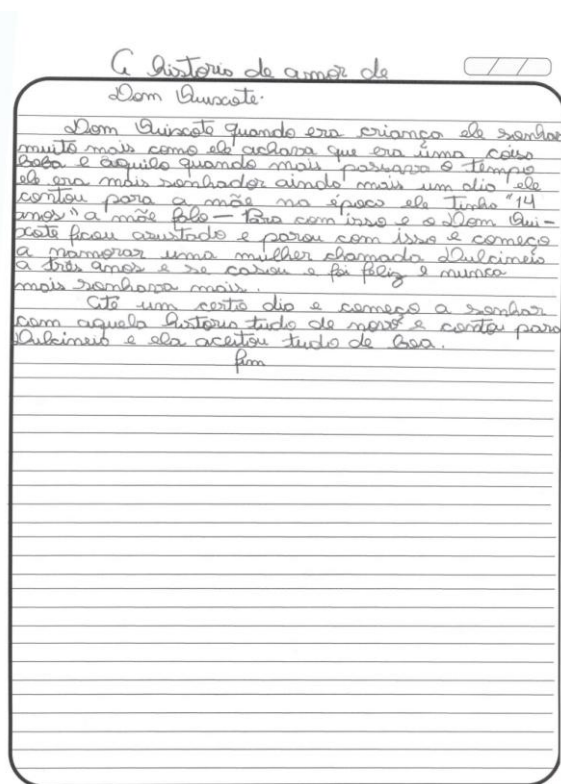 A historia de amor de
Dom Quixote.
Dom Quixote quando era criança ele sonhar
muito mais como ele achava que era uma coisa
boba e aquilo quando mais passava o tempo
ele era mais sonhador ainda mais um dia ele
contou para a mãe na época ele tinha "14
anos" a mãe falo — Para com isso e o Dom Qui-
xote ficou asustado e parou com isso e começo
a namorar uma mulher chamada Dulcineia
a três anos e se casou e foi feliz e nunca
mais sonhava mais.
Até um certo dia e começo a sonhar
com aquela historia tudo de novo e contou para
Dulcineia e ela aceitou tudo de boa.
fim